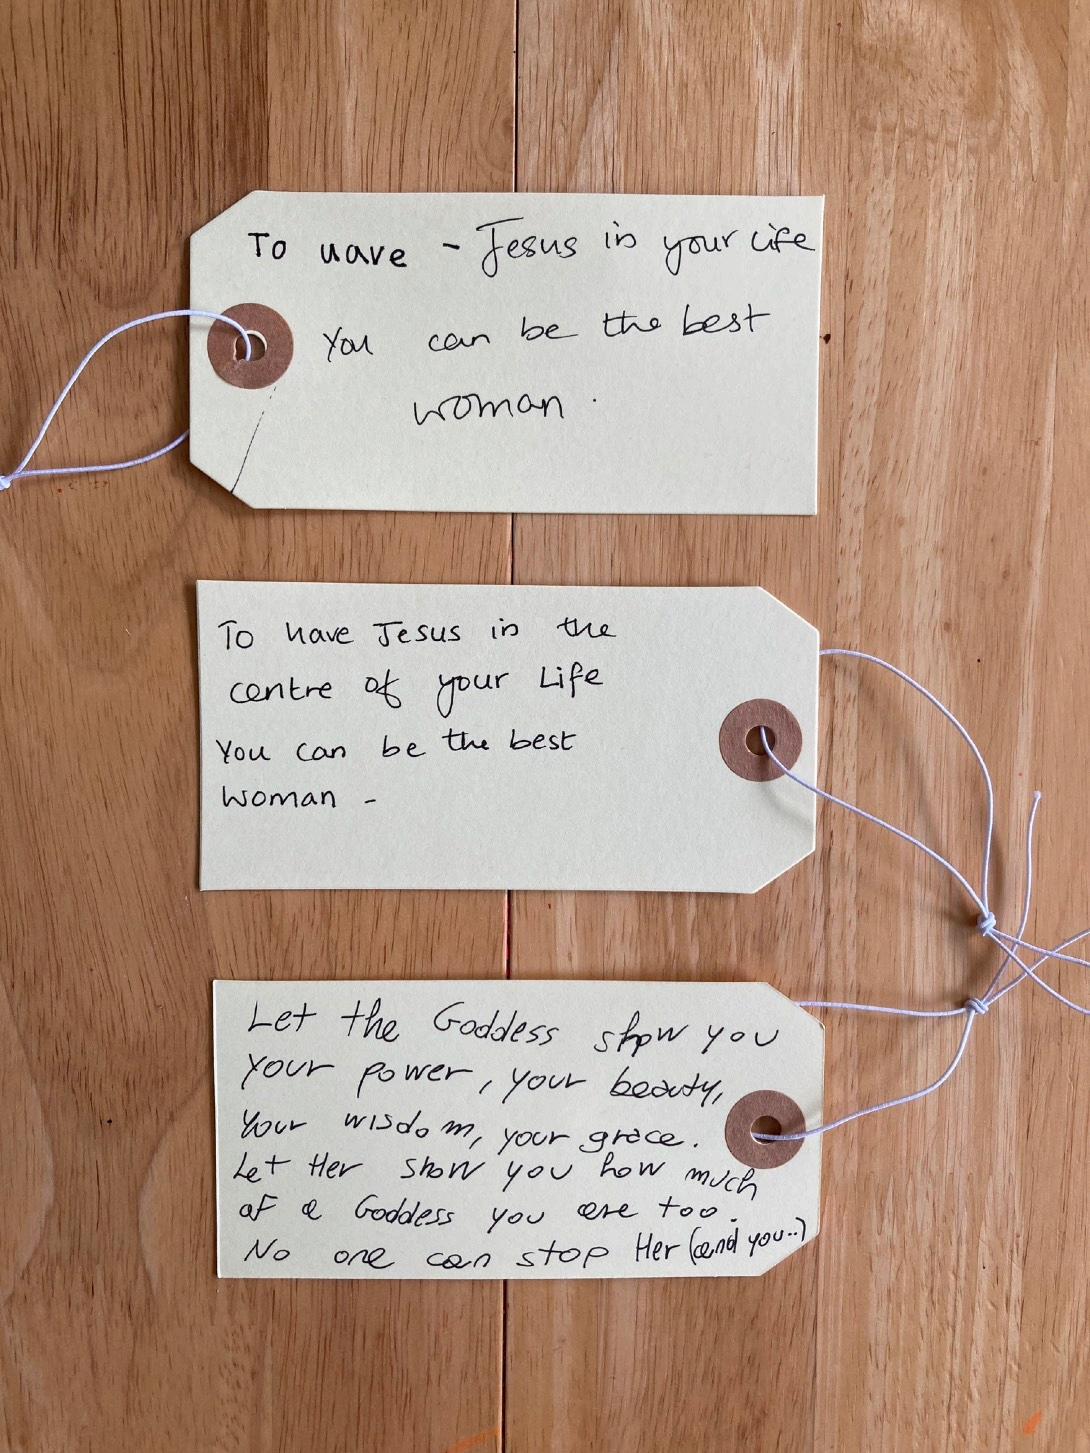 To have - Jesus in your Life
You can be the best
woman .
To have Jesus in the
centre of your Life
You can be the best
woman -
Let the Goddess show you
your power, your beauty,
your wisdom, your grace.
Let Her show you how much
of a Goddess you are too.
No one can stop Her (and you..)